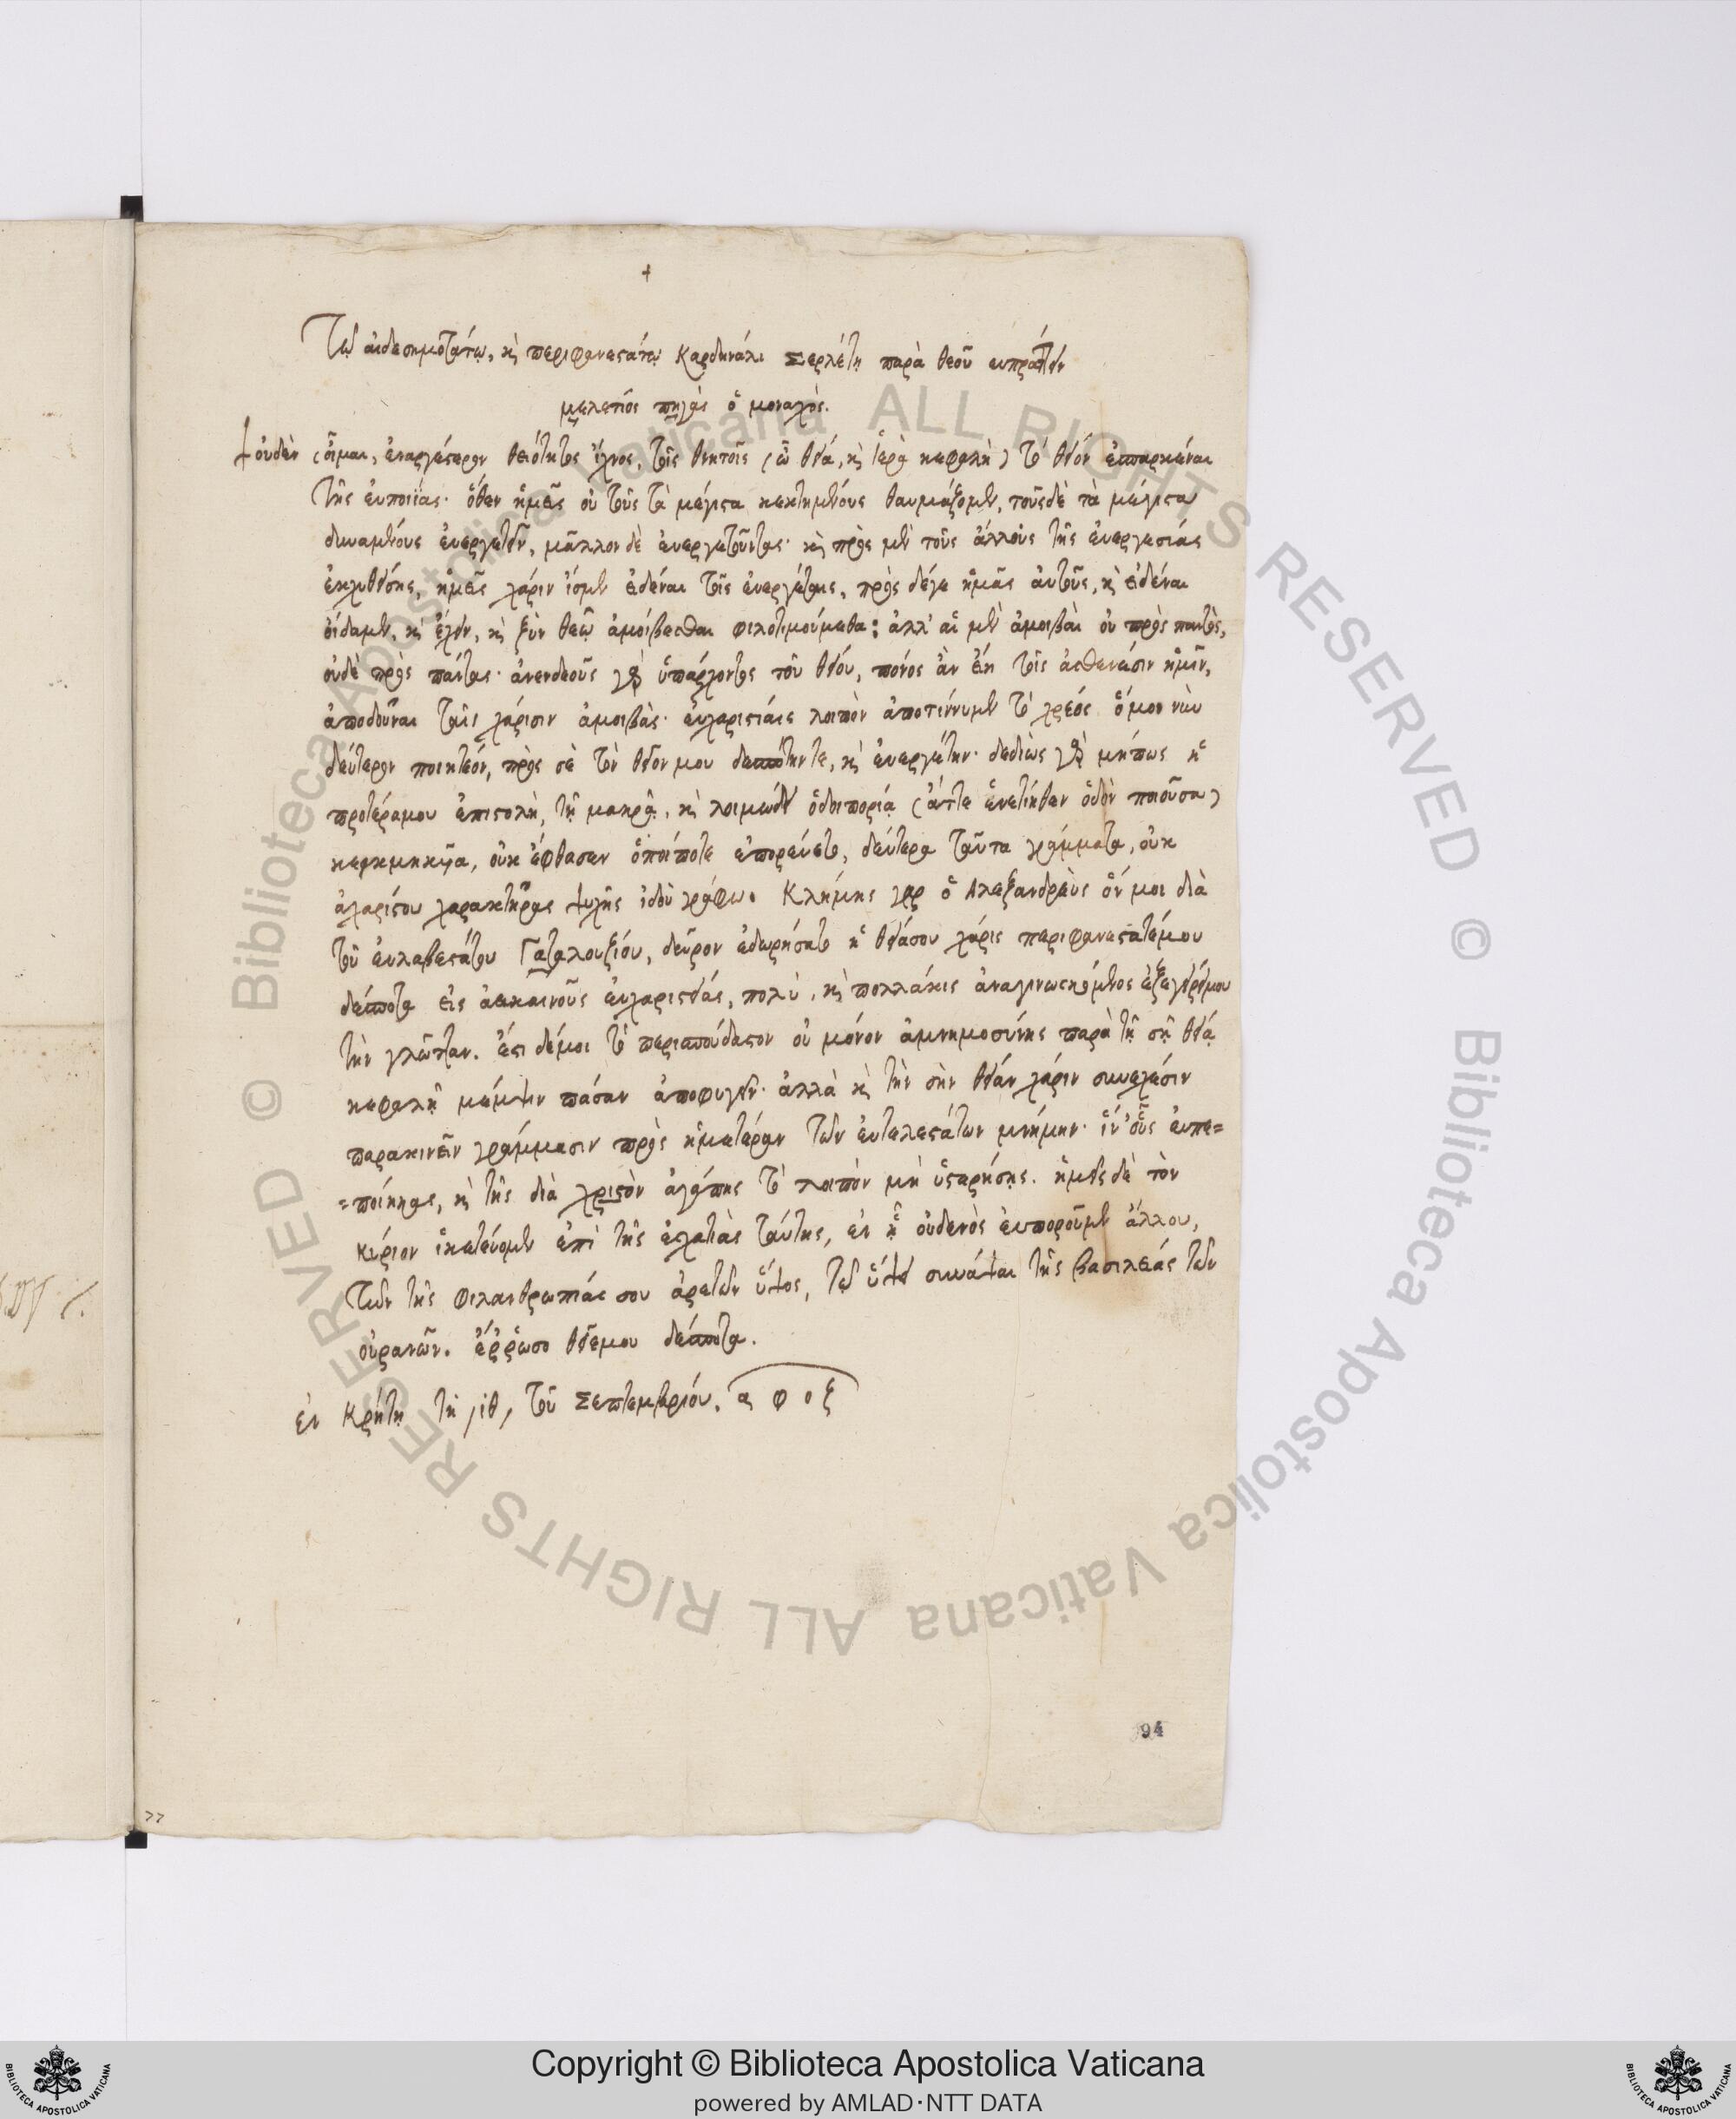 +
Τῷ αἰδεσημοτάτῳ, κὶ περιφανεστάτῳ Καρδηνάλι Σερλέτῳ παρὰ θεοῦ ευπράττειν
μελετίος πηγὰς ὁ μοναχὸς.
+ οὐδὲν (οἶμαι, ἐναργέστερον θειότητος ἴχνος, τοῖς θνητοῖς (ὦ θεία, κὶ ἱερὰ κεφαλὴ) τὸ θεῖον ἐμπαρκέναι
τῆς ἐυποιΐας· ὅθεν ἡμεῖς οὐ τοὺς τὰ μέγιστα κεκτημένους θαυμάζομεν, τοὺςδὲ τὰ μέγιστα
δυναμένους ἐυεργετεῖν, μᾶλλον δὲ ἐυεργετοῦντας· κὶ πρὸς μὲν τοὺς ἄλλους τῆς ἐυεργεσίας
ἐκχυθείσης, ἡμεῖς χάριν ἴσμεν ἐιδέναι τοῖς ἐυεργέταις, πρὸς δέγε ἡμᾶς ἀυτοὺς, κὶ ἐιδέναι
οἴδαμεν, κὶ ἔχειν, κὶ ξὺν θεῷ ἀμοίβεσθαι φιλοτιμούμεθα: ἀλλ' αἱ μὲν ἀμοιβὰι οὐ πρὸς παντὸς,
οὐδὲ πρὸς πάντας· ἀνενδεοῦς γὰρ ὑπάρχοντος τοῦ θείου, πόνος ἀν ἔιη τοῖς ἀσθενέσιν ἡμῖν,
ἀποδοῦναι ταῖς χάρισιν ἀμοιβὰς· ἐυχαριστίαις λοιπὸν ἀποτίννυμεν τὸ χρέος ὅ μοι νῦν
δεύτερον ποιητέον, πρὸς σὲ τὸν θεῖον μου δεσπότηντε, κὶ ἐυεργέτην· δεδιὼς γὰρ μήπως ἡ
προτέραμου ἐπιστολὴ, τῇ μακρᾷ, κὶ λοιμώδει ὁδοιπορίᾳ (ἅτε ἐνετίηθεν ὁδὸν ποιοῦσα)
κεκμηκυῖα, οὐκ ἔφθασεν ὅποιποτε ἐπορεύετο, δεύτερα ταῦτα γράμματα, οὐκ
ἀχαρίστου χαρακτῆρας ψυχῆς ἰδοὺ γράφω. Κλήμης γὰρ ὁ Αλεξανδρεὺς ὅν μοι διὰ
τοῦ ἐυλαβεστάτου Γαταλουξίου, δεῦρον ἐδωρήσατο ἡ θείασου χάρις περιφανεστατέμου
δέσποτα εἰς ἀεικαινοὺς ἐυχαριστείας, πολὺ, κὶ πολλάκις ἀναγινωσκόμενος ἐξεγείρειμου
τὴν γλῶτταν. ἔστι δέμοι τὸ περισπούδαστον οὐ μόνον ἀμνημοσύνης παρὰ τῇ σῇ θείᾳ
κεφαλῇ μέμψιν πάσαν ἀποφυγεῖν· ἀλλὰ κὶ τὴν σὴν θείαν χάριν συνεχέσιν
παρακινεῖν γράμμασιν πρὸς ἡμετέραν τῶν ἐυτελεστάτων μνήμην· ἵν' οὓς ἐυπε=
=ποίηκας, κὶ τῆς διὰ χριστὸν ἀγάπης τὸ λοιπὸν μὴ ὑστερήσῃς. ἡμεῖς δὲ τὸν
κύριον ἱκετεύομεν ἐπὶ τῆς ἐσχατιᾶς ταύτης, ἐν ᾗ οὐδενὸς ἐυποροῦμεν ἄλλου,
τῶν τῆς φιλανθρωπίας σου ἀρετῶν ὕψος, τῷ ὕψει συνάψαι τῆς βασιλείας τῶν
οὐρανῶν. ἔῤῥωσο θεῖεμου δέσποτα.
ἐν Κρήτῃ τῇ ,ιθ, τοῦ Σεπτεμβρίου. α φ ο ξ
94